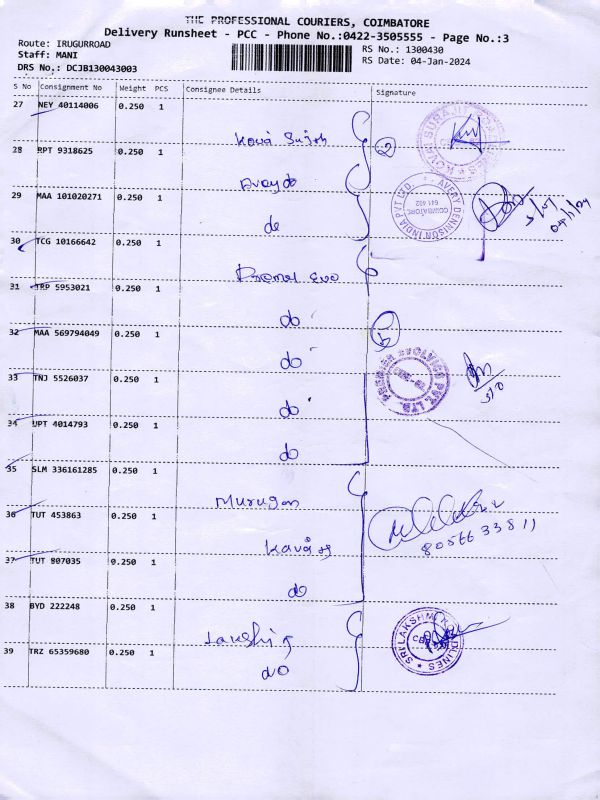 THE PROFESSIONAL COURIERS, COIMBATORE
Delivery Runsheet - PCC - Phone No.:0422-3505555 - Page No.:3
Route: IRUGURROAD
Staff: MANI
DRS No.: DCJB130043003
RS No.: 1300430
RS Date: 04-Jan-2024
S No Consignment No Weight PCS Consignee Details Signature
27 NEY 40114006 0.250 1
28 RPT 9318625 0.250 1
29 MAA 101020271 0.250 1
do
30 TCG 10166642 0.250 1
31 TRP 5953021 0.250 1
do
32 MAA 569794049 0.250 1
do
33 TNJ 5526037 0.250 1
do
34 UPT 4014793 0.250 1
do
35 SLM 336161285 0.250 1
Murugan
36 TUT 453863 0.250 1
37 TUT 807035 0.250 1
do
38 BYD 222248 0.250 1
39 TRZ 65359680 0.250 1
do
AVERY DENNISON INDIA PVT LTD.
COIMBATORE
641 402
8056633811
SRI LAKSHMI